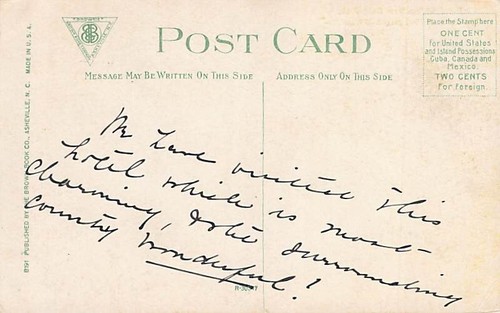 POST CARD
MESSAGE MAY BE WRITTEN ON THIS SIDE
ADDRESS ONLY ON THIS SIDE
Place the Stamp here
ONE CENT
for United States
and Island Possessions
Cuba, Canada and
Mexico.
TWO CENTS
for foreign.
We have visited this
hotel which is most
charming, & the surrounding
county wonderful!
8191 PUBLISHED BY THE BROWN BOOK CO., ASHEVILLE, N. C. MADE IN U. S. A.